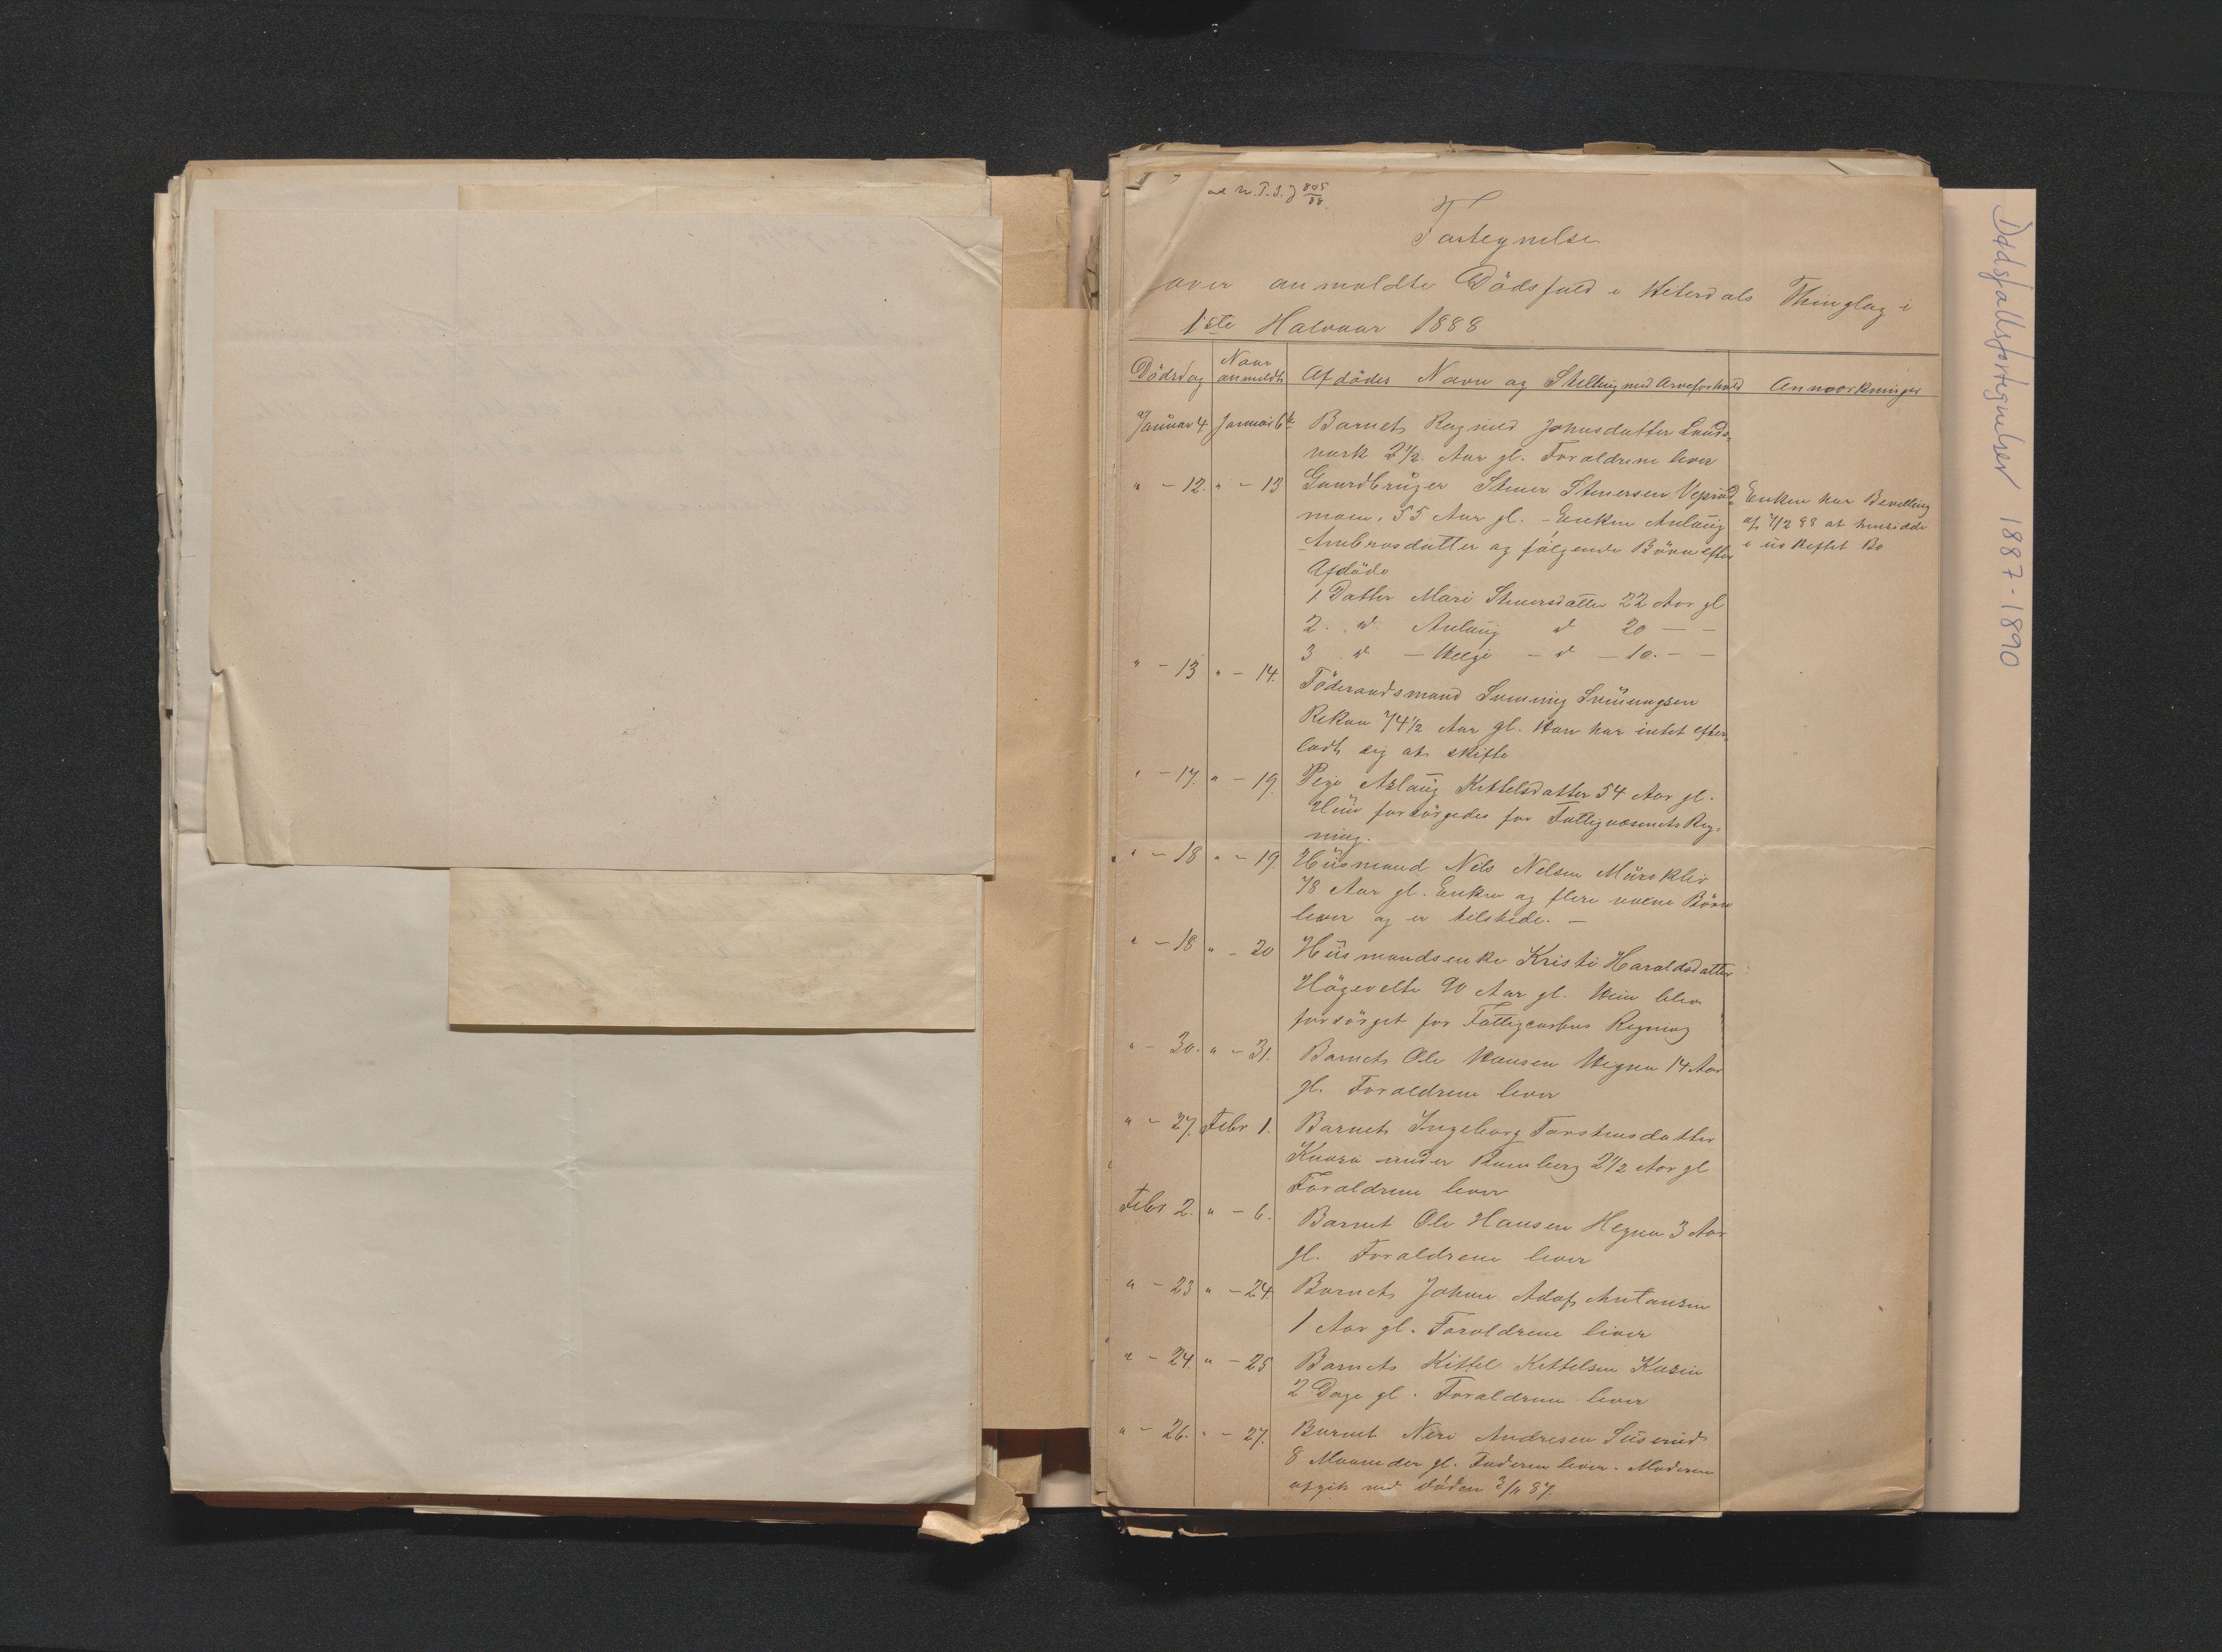 Fortegnelse
over anmeldte Dödsfald i Hiterdals Thinglag i
1ste Halvaar 1888
Dödsdag Naar anmeldt Afdödes Navn og Stilling med Arveforhold Anmærkninger
Januar 4 Januar 6te Barnet Ragnild Johnsdatter Lands-
værk 2 1/2 Aar gl. Forældrene lever
" - 12. " - 13 Gaardbruger Stener Stenersen Vepsid- Enken har Bevilling
moen, 55 Aar gl. - Enken Anlaug af 7/2 88 at hensidde
Ambrosdatter og følgende Börn efter i uskiftet Bo
Afdöde
1 Datter Mari Stenersdatter 22 Aar gl
2. d. Anlaug d 20 - -
3 d - Helge - d - 10. - -
" - 13 " - 14. Föderaadsmand Svenning Svenungsen
Rekaa 74 1/2 Aar gl. Han har intet efter-
ladt sig at skifte
" - 17. " - 19. Pige Aslaug Kittelsdatter 54 Aar gl.
Hun forsörgedes for Fattigvæsenets Reg-
ning.
" - 18 " - 19. Husmand Nils Nelsen Mureklev
78 Aar gl. Enken og flere voxne Börn
lever og er tilstede. -
" - 18 " - 20 Husmandsenke Kristi Haraldsdatter
Högevelte 90 Aar gl. Hun blev
forsörget for Fattigcassens Regning
" - 30. " - 31. Barnet Ole Hansen Hegna 14 Aar
gl. Forældrene lever
" - 27. Febr 1. Barnet Ingeborg Torstensdatter
under Ramberg 2 1/2 Aar gl
Forældrene lever
Febr 2. " - 6. Barnet Ole Hansen Hegna 3 Aar
gl. Forældrene lever
" - 23 " - 24. Barnet Johan Adof Antonsen
1 Aar gl. Forældrene lever
" - 24. " - 25 Barnet Kittel Kittelsen Kasin
2 Dage gl. Forældrene lever
" - 26. " - 27. Barnet Neri Andresen Suserud
8 Maaneder gl. Faderen lever. Moderen
afgik ved Döden 3/11 87.
Dødsfallsfortegnelser 1887-1890